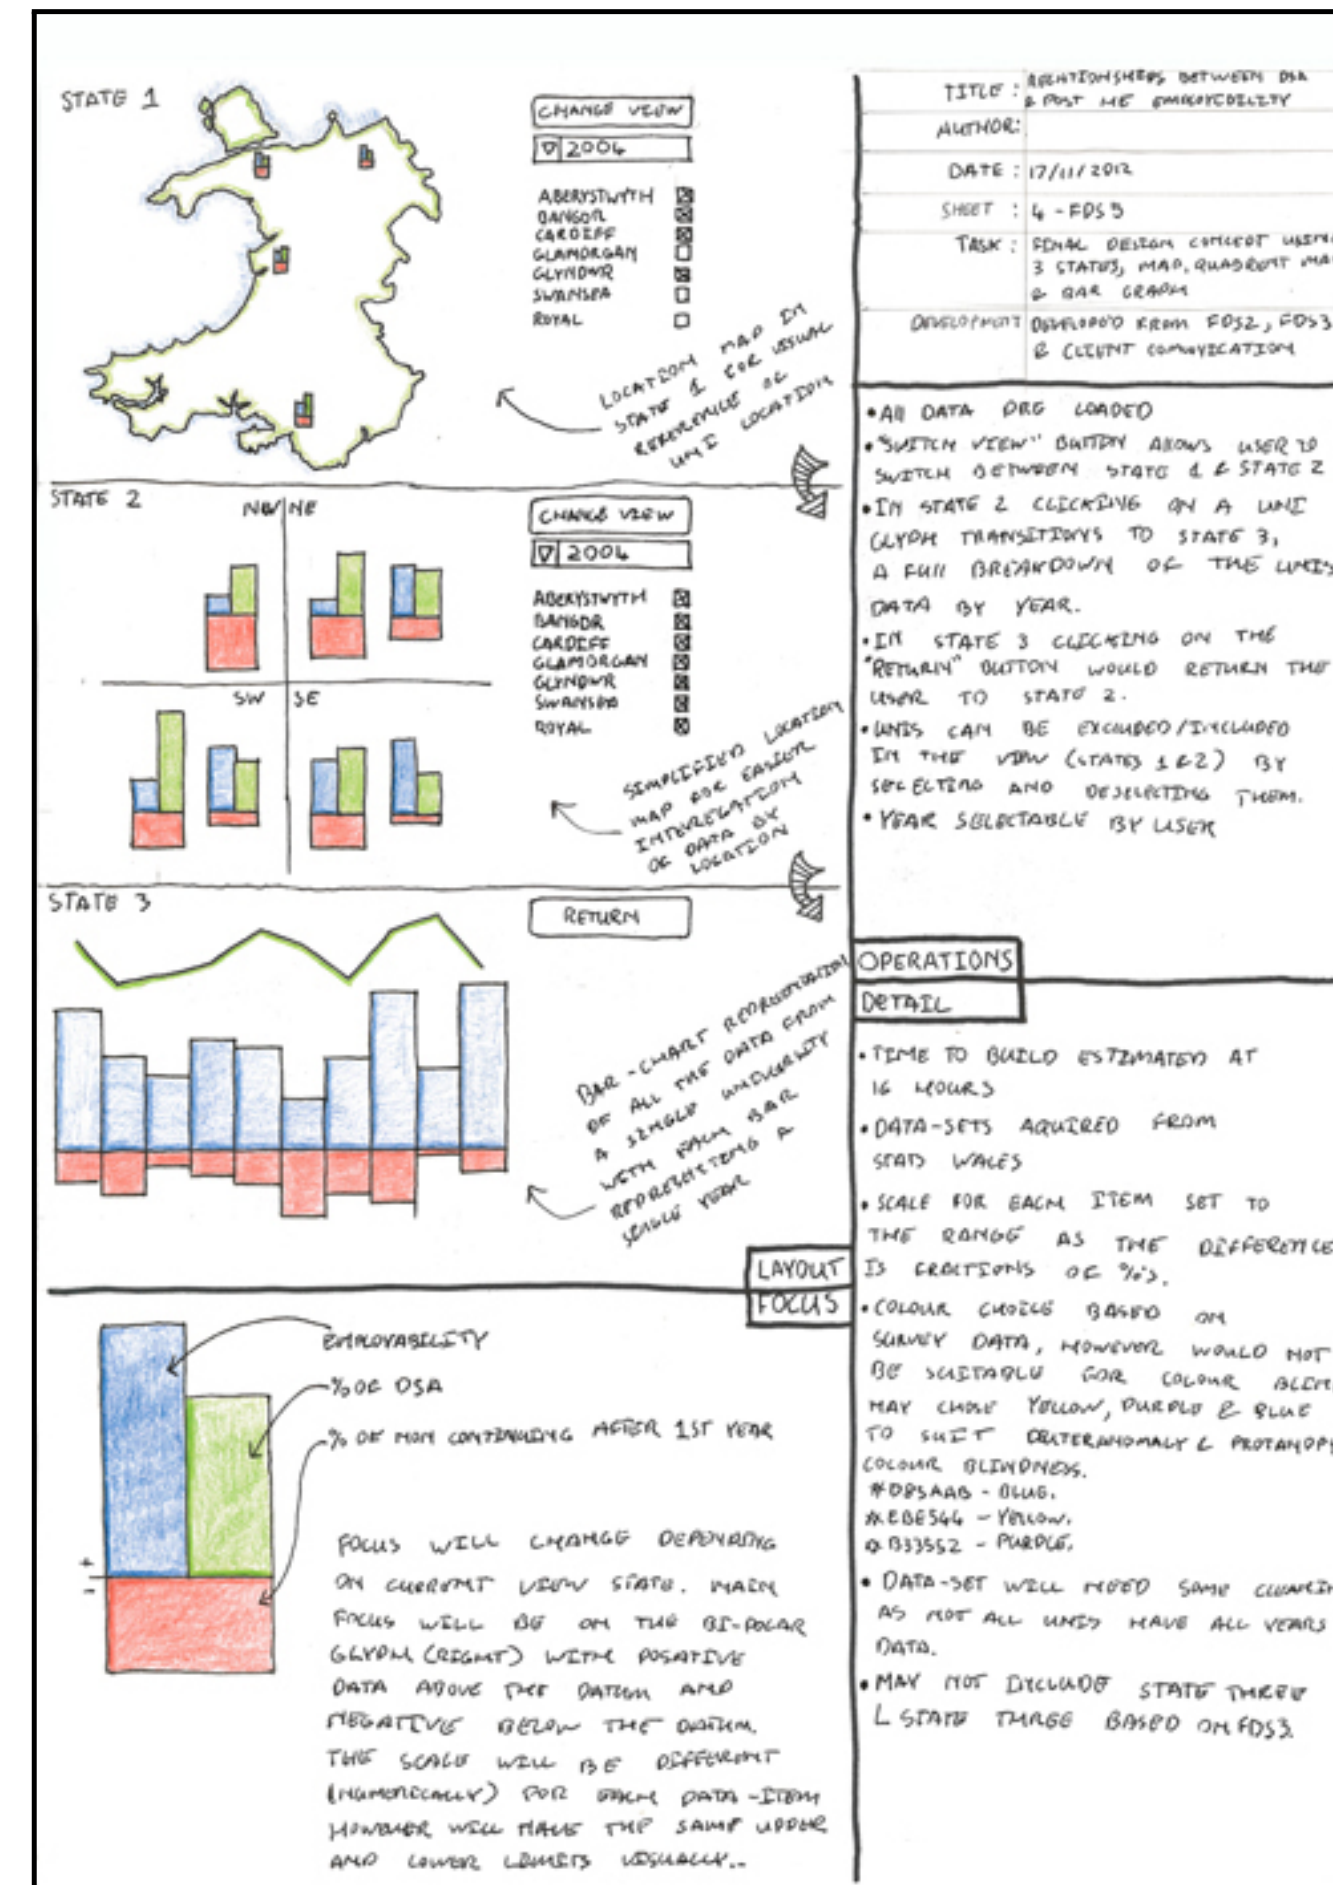 STATE 1
CHANGE VIEW
2004
ABERYSTWYTH
BANGOR
CARDIFF
GLAMORGAN
GLYNDWR
SWANSEA
ROYAL
LOCATION MAP IN
STATE 1 FOR VISUAL
REFERENCE OF
UNI LOCATION
STATE 2
NW NE
SW SE
CHANGE VIEW
2004
ABERYSTWYTH
BANGOR
CARDIFF
GLAMORGAN
GLYNDWR
SWANSEA
ROYAL
SIMPLIFIED LOCATION
MAP FOR EASIER
INTEREGATION
OF DATA BY
LOCATION
STATE 3
RETURN
BAR-CHART REPRESENTATION
OF ALL THE DATA FROM
A SINGLE UNIVERSITY
WITH EACH BAR
REPRESENTING A
SINGLE YEAR
LAYOUT
FOCUS
EMPLOYABILITY
% OF DSA
% OF NON CONTINUING AFTER 1ST YEAR
+
-
FOCUS WILL CHANGE DEPENDING
ON CURRENT VIEW STATE. MAIN
FOCUS WILL BE ON THE BI-POLAR
GLYPH (RIGHT) WITH POSATIVE
DATA ABOVE THE DATUM AND
NEGATIVE BELOW THE DATUM.
THE SCALE WILL BE DIFFERENT
(NUMERICALLY) FOR EACH DATA-ITEM
HOWEVER WILL HAVE THE SAME UPPER
AND LOWER LIMITS VISUALLY..
TITLE : RELATIONSHIPS BETWEEN DSA
& POST HE
AUTHOR:
DATE : 17/11/2012
SHEET : 4 - FDS 5
TASK : FINAL DESIGN CONCEPT USING
3 STATES, MAP, QUADRENT MAP
& BAR GRAPH
DEVELOPMENT DEVELOPED FROM FDS2, FDS3
& CLIENT
• All DATA PRE LOADED
• "SWITCH VIEW" BUTTON ALLOWS USER TO
SWITCH BETWEEN STATE 1 & STATE 2
• IN STATE 2 CLICKING ON A UNI
GLYPH TRANSITIONS TO STATE 3,
A FULL BREAKDOWN OF THE UNIS
DATA BY YEAR.
• IN STATE 3 CLICKING ON THE
"RETURN" BUTTON WOULD RETURN THE
USER TO STATE 2.
• UNIS CAN BE EXCLUDED/INCLUDED
IN THE VIEW (STATES 1 & 2) BY
SELECTING AND DESELECTING THEM.
• YEAR SELECTABLE BY USER
OPERATIONS
DETAIL
• TIME TO BUILD ESTIMATED AT
16 HOURS
• DATA-SETS AQUIRED FROM
STATS WALES
• SCALE FOR EACH ITEM SET TO
THE RANGE AS THE DIFFERENCE
IS FRACTIONS OF %'s.
• COLOUR CHOICE BASED ON
SURVEY DATA, HOWEVER WOULD NOT
BE SUITABLE FOR COLOUR BLIND
MAY CHOSE YELLOW, PURPLE & BLUE
TO SUIT DEUTERANOMALY & PROTANOPY
COLOUR BLINDNESS.
- BLUE.
#EBE544 - YELLOW.
- PURPLE.
• DATA-SET WILL NEED SOME CLEANING
AS NOT ALL UNIS HAVE ALL YEARS
DATA.
• MAY NOT INCLUDE STATE THREE
L STATE THREE BASED ON FDS3.